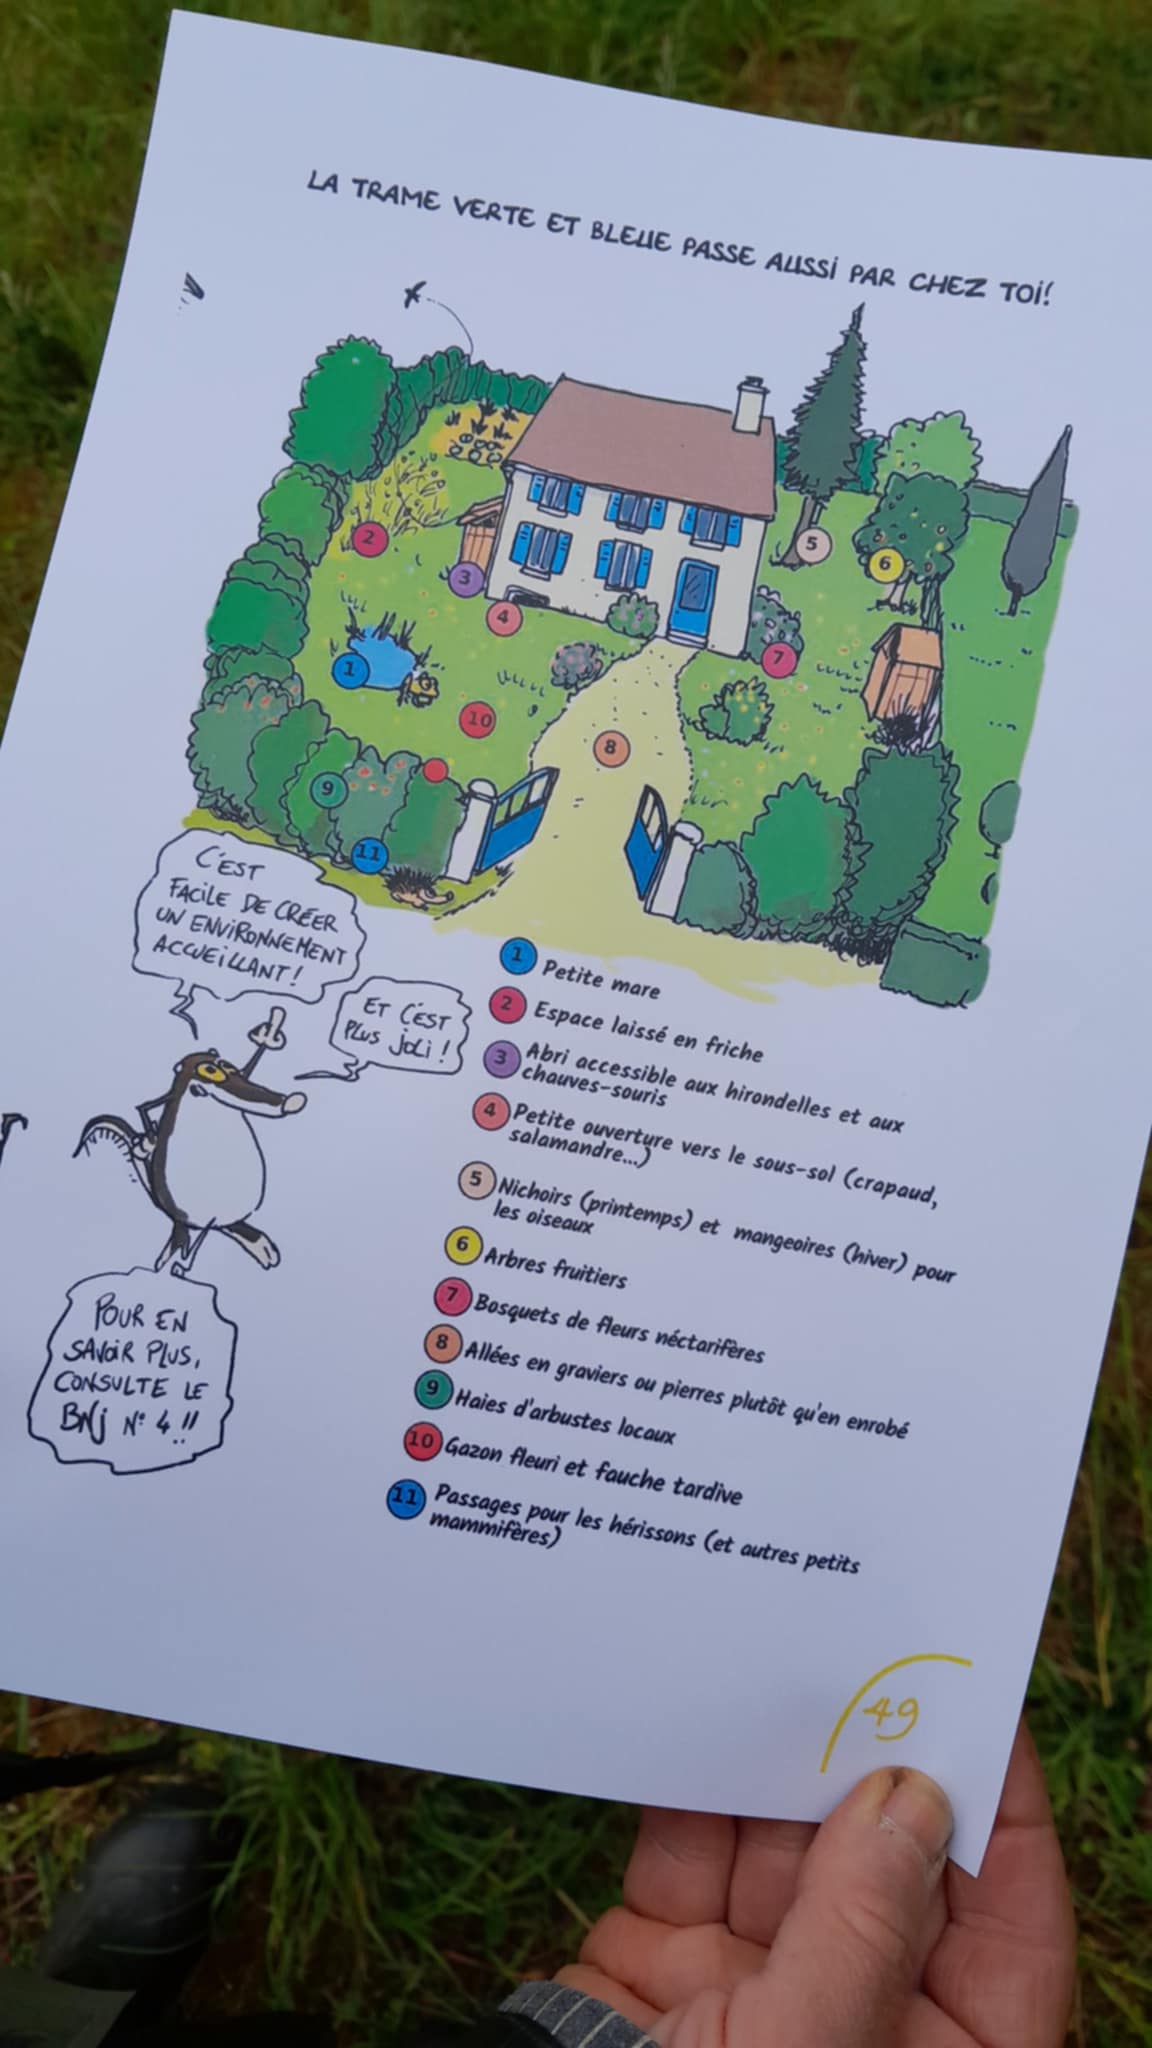 LA TRAME VERTE ET BLEUE PASSE AUSSI PAR CHEZ TOI!
2
5
6
3
4
1
7
10
8
9
11
C'EST
FACILE DE CRÉER
UN ENVIRONNEMENT
ACCUEILLANT!
ET C'EST
PLUS JOLI!
POUR EN
SAVOIR PLUS,
CONSULTE LE
BNJ N° 4 !!
1 Petite mare
2 Espace laissé en friche
3 Abri accessible aux hirondelles et aux
chauves-souris
4 Petite ouverture vers le sous-sol (crapaud,
salamandre...)
5 Nichoirs (printemps) et mangeoires (hiver) pour
les oiseaux
6 Arbres fruitiers
7 Bosquets de fleurs néctarifères
8 Allées en graviers ou pierres plutôt qu'en enrobé
9 Haies d'arbustes locaux
10 Gazon fleuri et fauche tardive
11 Passages pour les hérissons (et autres petits
mammifères)
49